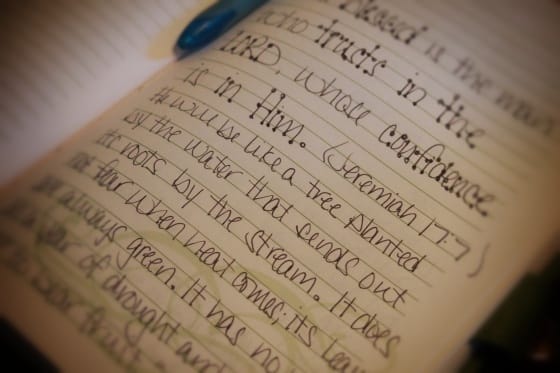 Blessed is the man
who trusts in the
LORD, whose confidence
is in Him. (Jeremiah 17:7)
He will be like a tree planted
by the water that sends out
its roots by the stream. It does
not fear when heat comes; its leav
are always green. It has no
year of drought and
bear fruit